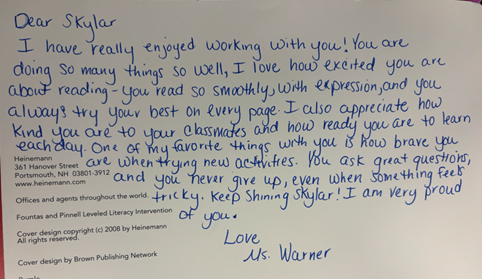 Dear Skylar
I have really enjoyed working with you! You are
doing so many things so well, I love how excited you are
about reading - you read so smoothly, with expression, and you
always try your best on every page. I also appreciate how
kind you are to your classmates and how ready you are to learn
each day. One of my favorite things with you is how brave you
Heinemann
361 Hanover Street are when trying new activities. You ask great questions,
Portsmouth, NH 03801-3912
www.heinemann.com and you never give up, even when something feels
Offices and agents throughout the world. tricky. Keep Shining Skylar! I am very proud
Fountas and Pinnell Leveled Literacy Intervention of you.
Cover design copyright (c) 2008 by Heinemann
All rights reserved.
Love
Ms. Warner
Cover design by Brown Publishing Network